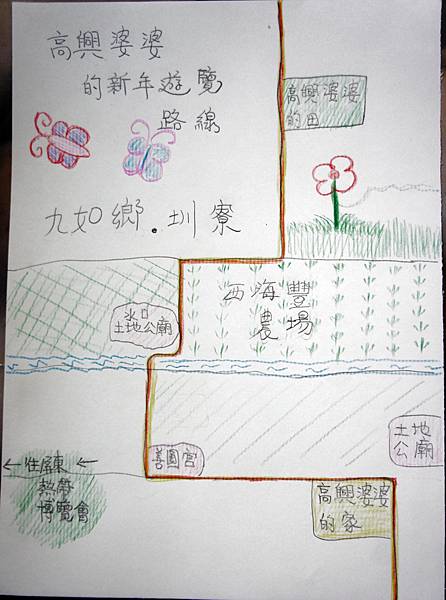 高興婆婆
的新年遊覽
路線
九如鄉.圳寮
高興婆婆
的田
西海豐
農場
水口
土地公廟
土地
公廟
善圓宮
←往屏東←
熱帶
博覽會
高興婆婆
的家